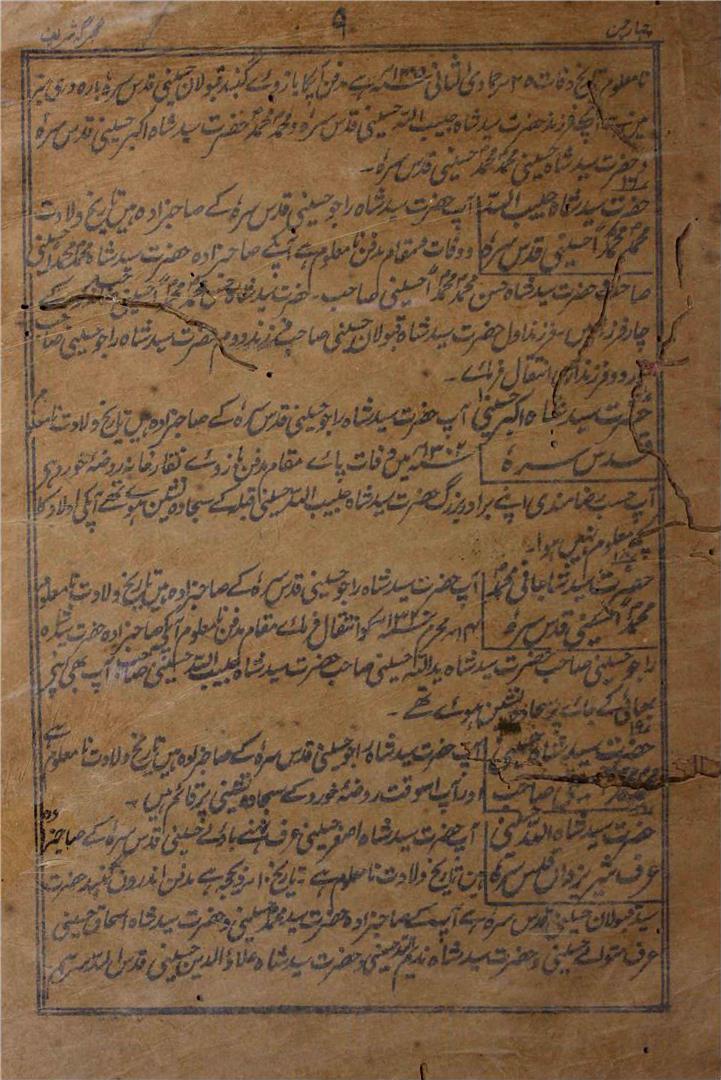 چہار چمن
۹
گلبرگہ شریف
نا معلوم تاریخ وفات ۲۵ جمادی الثانی ہے مدفن آپکا بازوے گنبد قبولان حسینی قدس سرہٗ بارہ دری
میں ہے آپکے فرزند حضرت سید شاہ حبیب اللہ حسینی قدس سرہٗ و محمد محمد حضرت سید شاہ اکبر حسینی قدس سرہٗ
و حضرت سید شاہ حسینی محمد محمد حسینی قدس سرہٗ۔
حضرت سید شاہ حبیب اللہ آپ حضرت سید شاہ راجو حسینی قدس سرہٗ کے صاحبزادہ ہیں تاریخ ولادت
محمد محمد حسینی قدس سرہٗ و وفات و مقام مدفن نا معلوم ہے آپکے صاحبزادہ حضرت سید شاہ محمد محمد حسینی
صاحب و حضرت سید شاہ حسن محمد محمد حسینی صاحب۔ حضرت سید شاہ حسن محمد محمد حسینی کے
چار فرزند ہیں فرزند اول حضرت سید شاہ قبولان حسینی صاحب فرزند دوم حضرت سید شاہ راجو حسینی صاحب
اور دو فرزند انتقال فرمائے۔
حضرت سید شاہ اکبر حسینی آپ حضرت سید شاہ راجو حسینی قدس سرہٗ کے صاحبزادہ ہیں تاریخ ولادت نا معلوم
قدس سرہٗ ۱۳۰۲ میں وفات پائے مقام مدفن بازوے نقار خانہ روضہ خورد ہے
آپ حسب رضامندی اپنے برادر بزرگ حضرت سید شاہ حبیب اللہ حسینی قبلہ کے سجادہ نشین ہوے تھے آپکی اولاد کا
کچھ معلوم نہیں ہوا۔
حضرت سید شاہ محمد آپ حضرت سید شاہ راجو حسینی قدس سرہٗ کے صاحبزادہ ہیں تاریخ ولادت نا معلوم
محمد حسینی قدس سرہٗ محرم کو انتقال فرمائے مقام مدفن نا معلوم آپکے صاحبزادہ حضرت سید شاہ
راجو حسینی صاحب حضرت سید شاہ ید اللہ حسینی صاحب حضرت سید شاہ حبیب اللہ حسینی صاحب آپ بھی اپنے
بھائی کے جائے پر سجادہ نشین ہوئے تھے۔
حضرت سید شاہ حسینی آپ حضرت سید شاہ راجو حسینی قدس سرہٗ کے صاحبزادہ ہیں تاریخ ولادت نا معلوم ہے
صاحب اور آپ اسوقت روضہ خورد کے سجادہ نشینی پر قائم ہیں۔
حضرت سید شاہ اللہ حسینی آپ حضرت سید شاہ اصغر حسینی عرف حسینی قدس سرہٗ کے صاحبزادہ
عرف شیر یزداں قدس سرہٗ ہیں تاریخ ولادت نا معلوم ہے۔ تاریخ ہے مدفن اندرون گنبد حضرت
سید قبولان حسینی قدس سرہٗ ہے آپ کے صاحبزادہ حضرت سید محمد حسینی و حضرت سید شاہ اسحاق حسینی
عرف متولے حسینی و حضرت سید شاہ ندیم اللہ حسینی و حضرت سید شاہ علاؤ الدین حسینی قدس اللہ سرہم